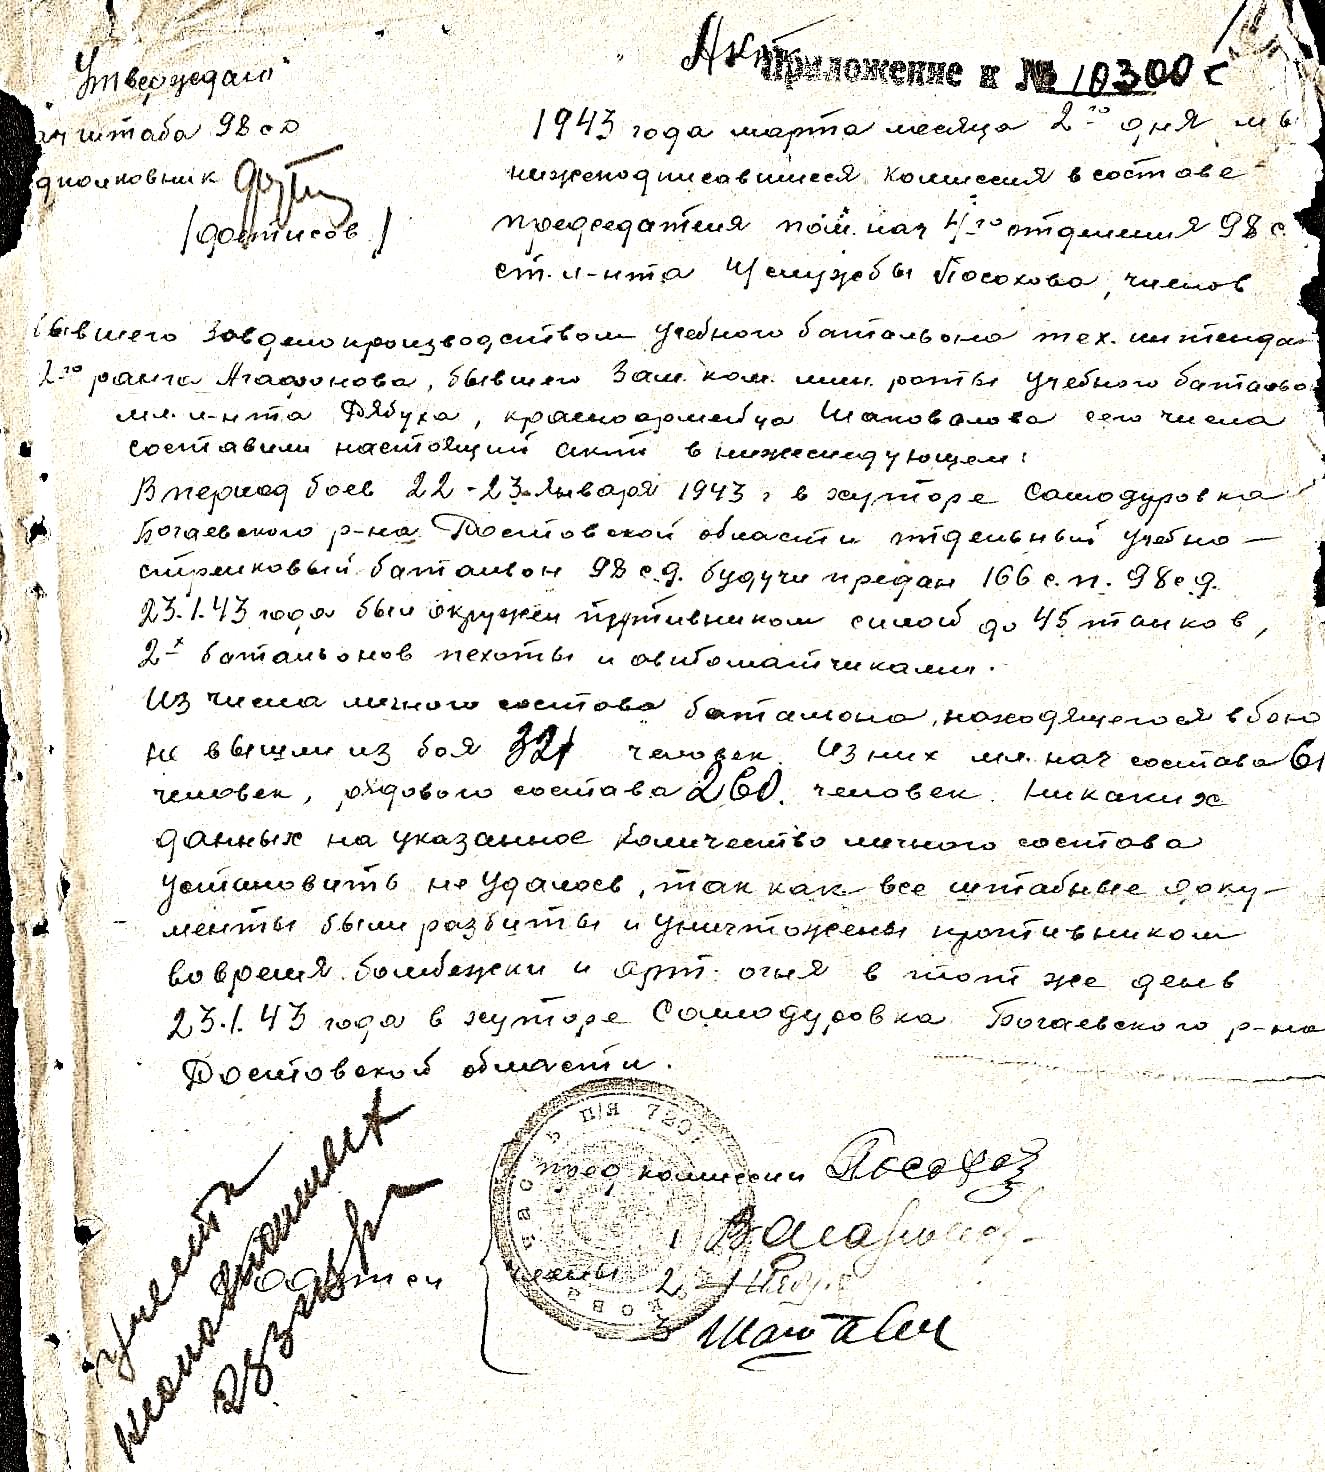 Акт
Приложение к № 10300 с
"Утверждаю"
штаба 98 сд
дполковник
/Фортисов/
1943 года марта месяца 2го дня мы
нижеподписавшиеся комиссия в составе
председателя пом. нач 4го отделения 98 с
ст. л-нта и/службы Посохова, членов
бывшего Завделопроизводством учебного батальона тех. интендан
2го ранга Агафонова, бывшего Зам. ком. мин. роты учебного батальо
мл. л-нта Рябуха, красноармейца Шаповалова сего числа
составили настоящий акт в нижеследующем:
В период боев 22-23 Января 1943 г в хуторе Самодуровка
Богаевского р-на Ростовской области отдельный учебно-
стрелковый баталион 98 с.д. будучи предан 166 с.п. 98 с.д.
23.1.43 года был окружен противником силой до 45 танков,
2х батальонов пехоты и автоматчиками.
Из числа личного состава баталиона, находящегося в бою
не вышли из боя 321 человек. Из них мл. нач состава 61
человек, рядового состава 260. человек. Никаких
данных на указанное количество личного состава
установить не удалось, так как все штабные доку-
менты были разбиты и уничтожены противником
во время бомбежки и арт. огня в тот же день
23.1.43 года в хуторе Самодуровка Богаевского р-на
Ростовской области.
п/я 7207
пред комиссии Посохов
члены
1
2
3 Шаповал